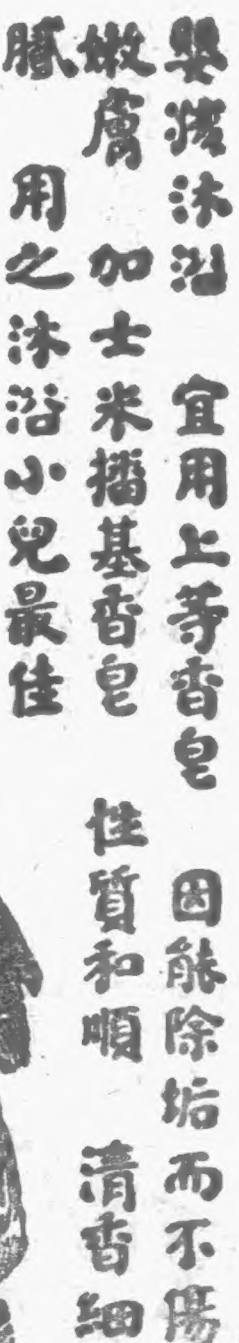 嬰孩沐浴　宜用上等香皂　因能除垢而不傷
嫩膚　加士米播基香皂　性質和順　清香細
膩　用之沐浴小兒最佳